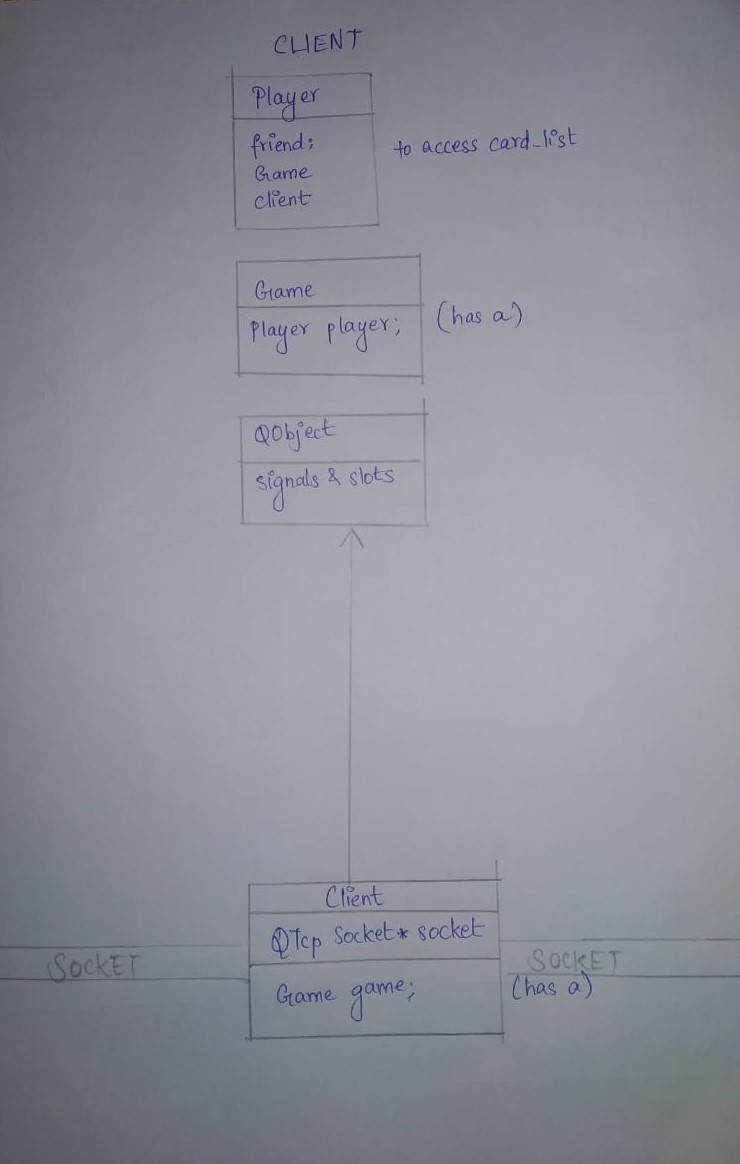 CLIENT
Player
friend:
Game
client
to access card_list
Game
Player player;
(has a)
QObject
signals & slots
Client
QTcp Socket* socket
SOCKET
SOCKET
Game game;
(has a)